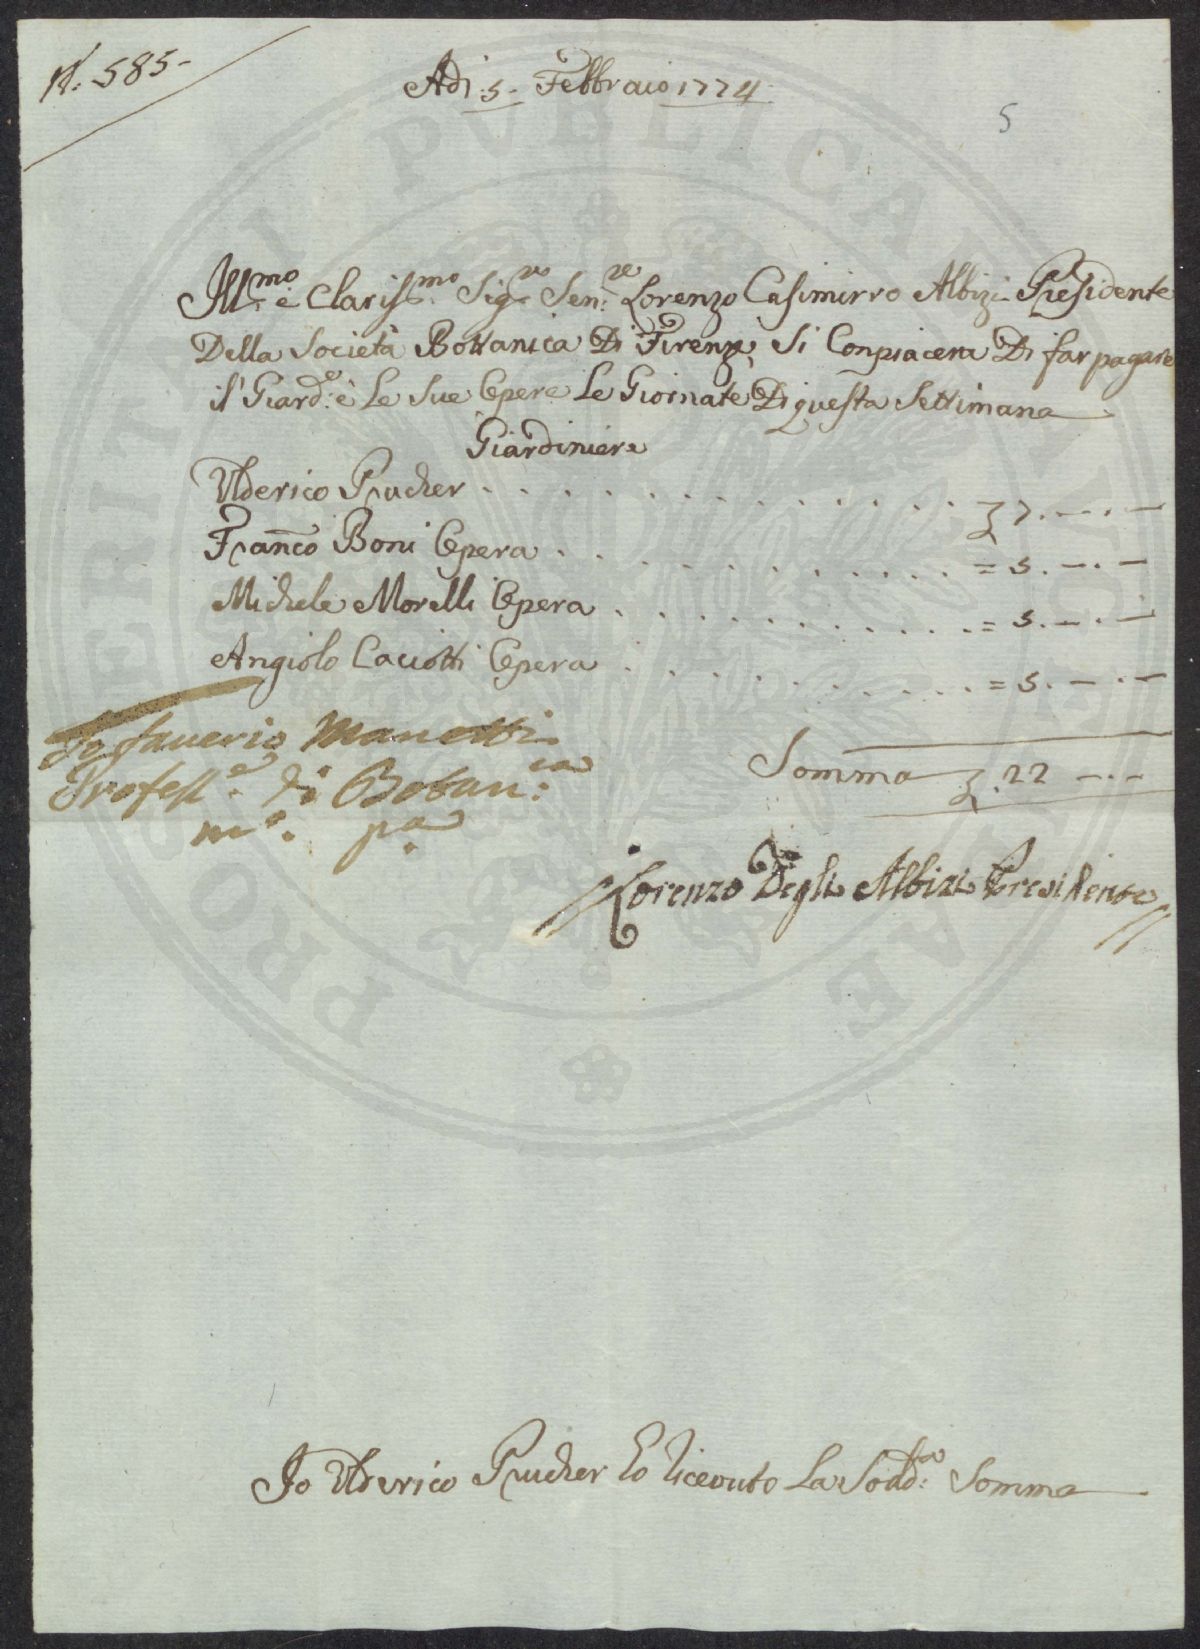 N. 585-
Adi 5. Febbraio 1774
5
Ill.mo e Clariss.mo Sig.re Sen.re Lorenzo Casimirro Albizi Presidente
Della Società Bottanica Di Firenze, Si Conpiacera Di far pagare
il Giard.e è Le Sue Opere Le Giornate Di questa Settimana
Giardiniere
Ulderico Prucher . . . . . . . . . . . . 7. — . —
Franco Boni Opera . . . . . . . . . . = 5. — . —
Michele Morelli Opera . . . . . . . . . = 5. — . —
Angiolo Caciotti Opera . . . . . . . . . = 5. — . —
Io Saverio Manetti
Profess.e di Botan.ca
m.o p.a
Somma 22 — . —
Lorenzo Degli Albizi Presidente
Io Ulderico Prucher ò riceuuto La Sodd.a Somma
PROSPERITATI PUBLICAE AUGENDAE